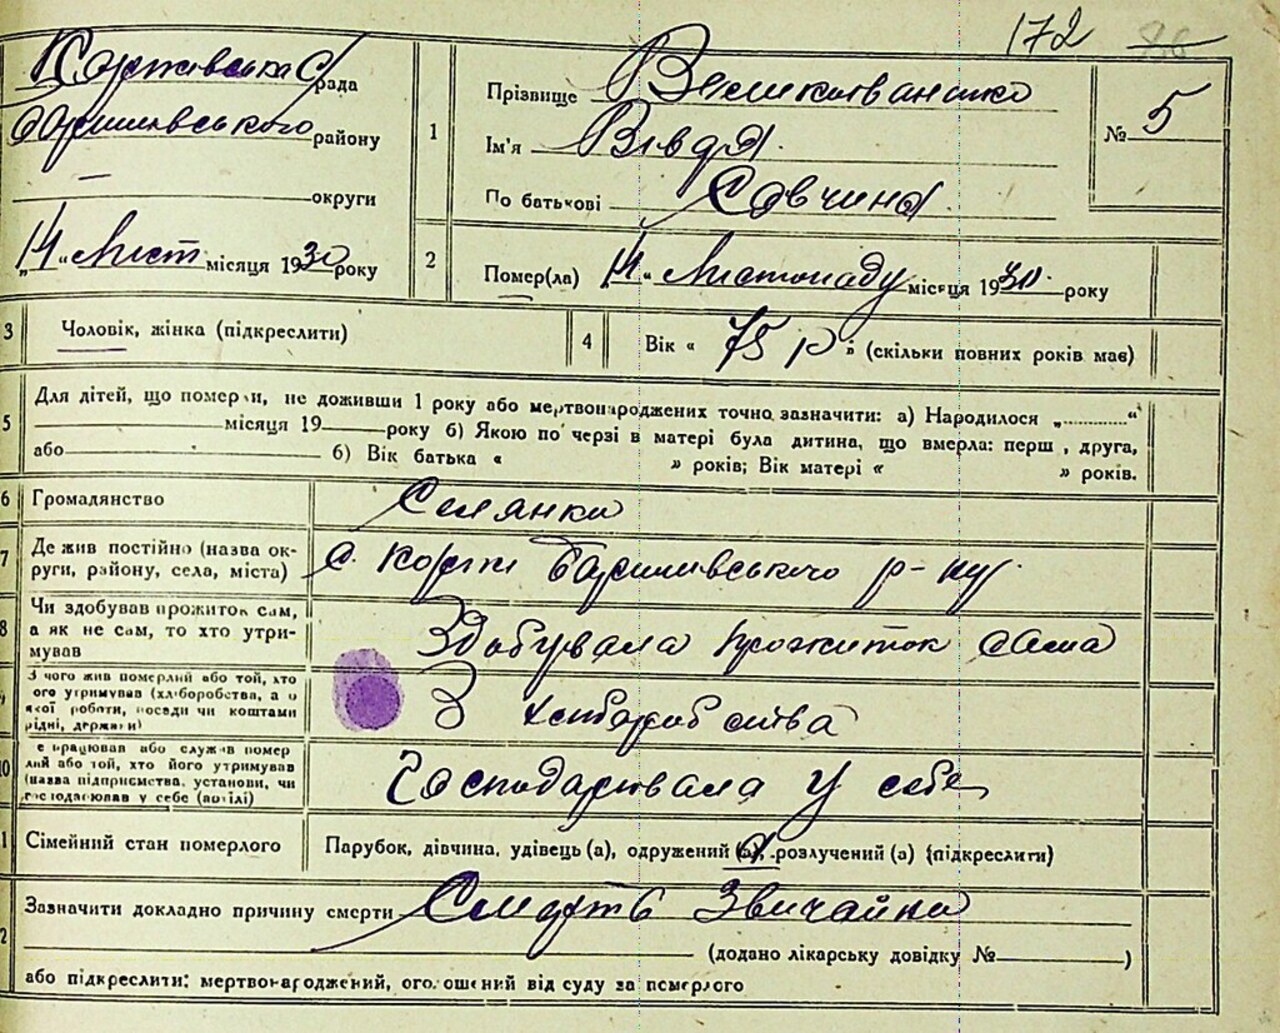 172 86
Коржівська С/рада
Баришівського району
— округи
„14 " Лист місяця 1930 року
1
Прізвище Великоіваненко
Ім'я Вівдя.
По батькові Савчина.
№ 5
2
Помер(ла) 14 " Листопаду місяця 1930. року
3 Чоловік, жінка (підкреслити)
4 Вік « 75 р » (скільки повних років мав)
5
Для дітей, що померли, не доживши 1 року або мертвонароджених точно зазначити: а) Народилося „............"
місяця 19 року б) Якою по черзі в матері була дитина, що вмерла: перш , друга,
або б) Вік батька « » років; Вік матері « » років.
6 Громадянство Селянка
7 Де жив постійно (назва ок-
руги, району, села, міста) с. Коржі Баришівського р-ну.
8 Чи здобував прожиток сам,
а як не сам, то хто утри-
мував Здобувала прожиток сама
З чого жив померлий або той, хто
ого утримував (хліборобства, а о
якої роботи, посади чи коштами
рідні, держави) З хліборобства
10 е працював або служив помер
лий або той, хто його утримував
(назва підприємства, установи, чи
господарював у себе (вдома) Господарювала у себе
1 Сімейний стан померлого Парубок, дівчина, удівець (а), одружений (а), розлучений (а) (підкреслити)
2
Зазначити докладно причину смерти Смерть Звичайна
(додано лікарську довідку № )
або підкреслити: мертвонароджений, оголошений від суду за померлого